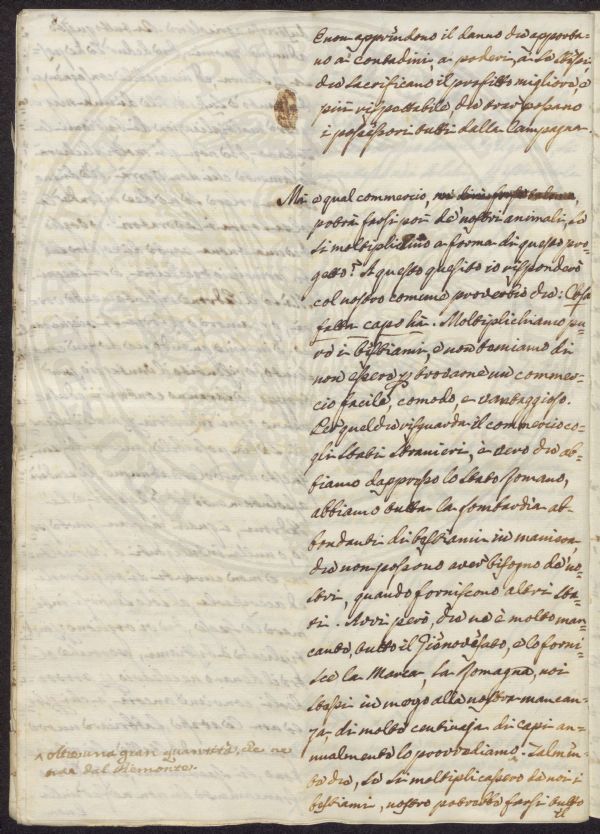 e non apprendono il danno che apporta-
no a' contadini, a' poderi, a se stessi,
che sacrificano il profitto migliore e
più rispettabile, che trar possano
i possessori tutti dalla Campagna.
Ma e qual commercio,
potrà farsi poi de' nostri animali, se
si moltiplicano a forma di questo pro-
getto? A questo quesito io risponderò
col nostro comune proverbio che: Cosa
fatta capo hà. Moltiplichiamo pu-
re i bestiami, e non temiamo di
non essere p trovarne un commer-
cio facile, comodo, e vantaggioso.
Per quel che risguarda il commercio co-
gli Stati Stranieri, è vero che ab-
biamo dappresso lo Stato Romano,
abbiamo tutta la Lombardia ab-
bondanti di bestiami in maniera,
che non possono aver bisogno de' no-
stri, quando forniscono altri Sta-
ti. Avvi però, che ne è molto man-
cante, tutto il Genovesato, e lo forni-
sce la Marca, la Romagna, noi
stessi in mezzo alla nostra mancan-
za, di molte centinaja di capi an-
nualmente lo provvediamo. Talmen-
te che, se si moltiplicassero da noi i
bestiami, nostro potrebbe farsi tutto
il
^ oltre una gran quantità, che ne
trae dal Piemonte.